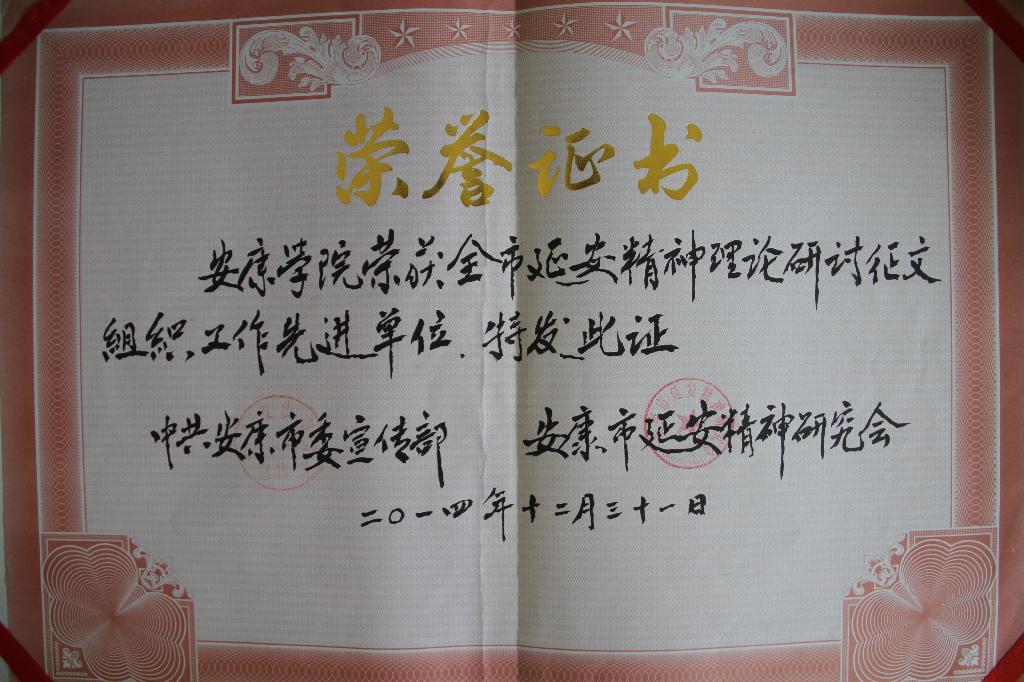 荣誉证书
安康学院荣获全市延安精神理论研讨征文
组织工作先进单位.特发此证
中共安康市委宣传部 安康市延安精神研究会
二〇一四年十二月三十一日